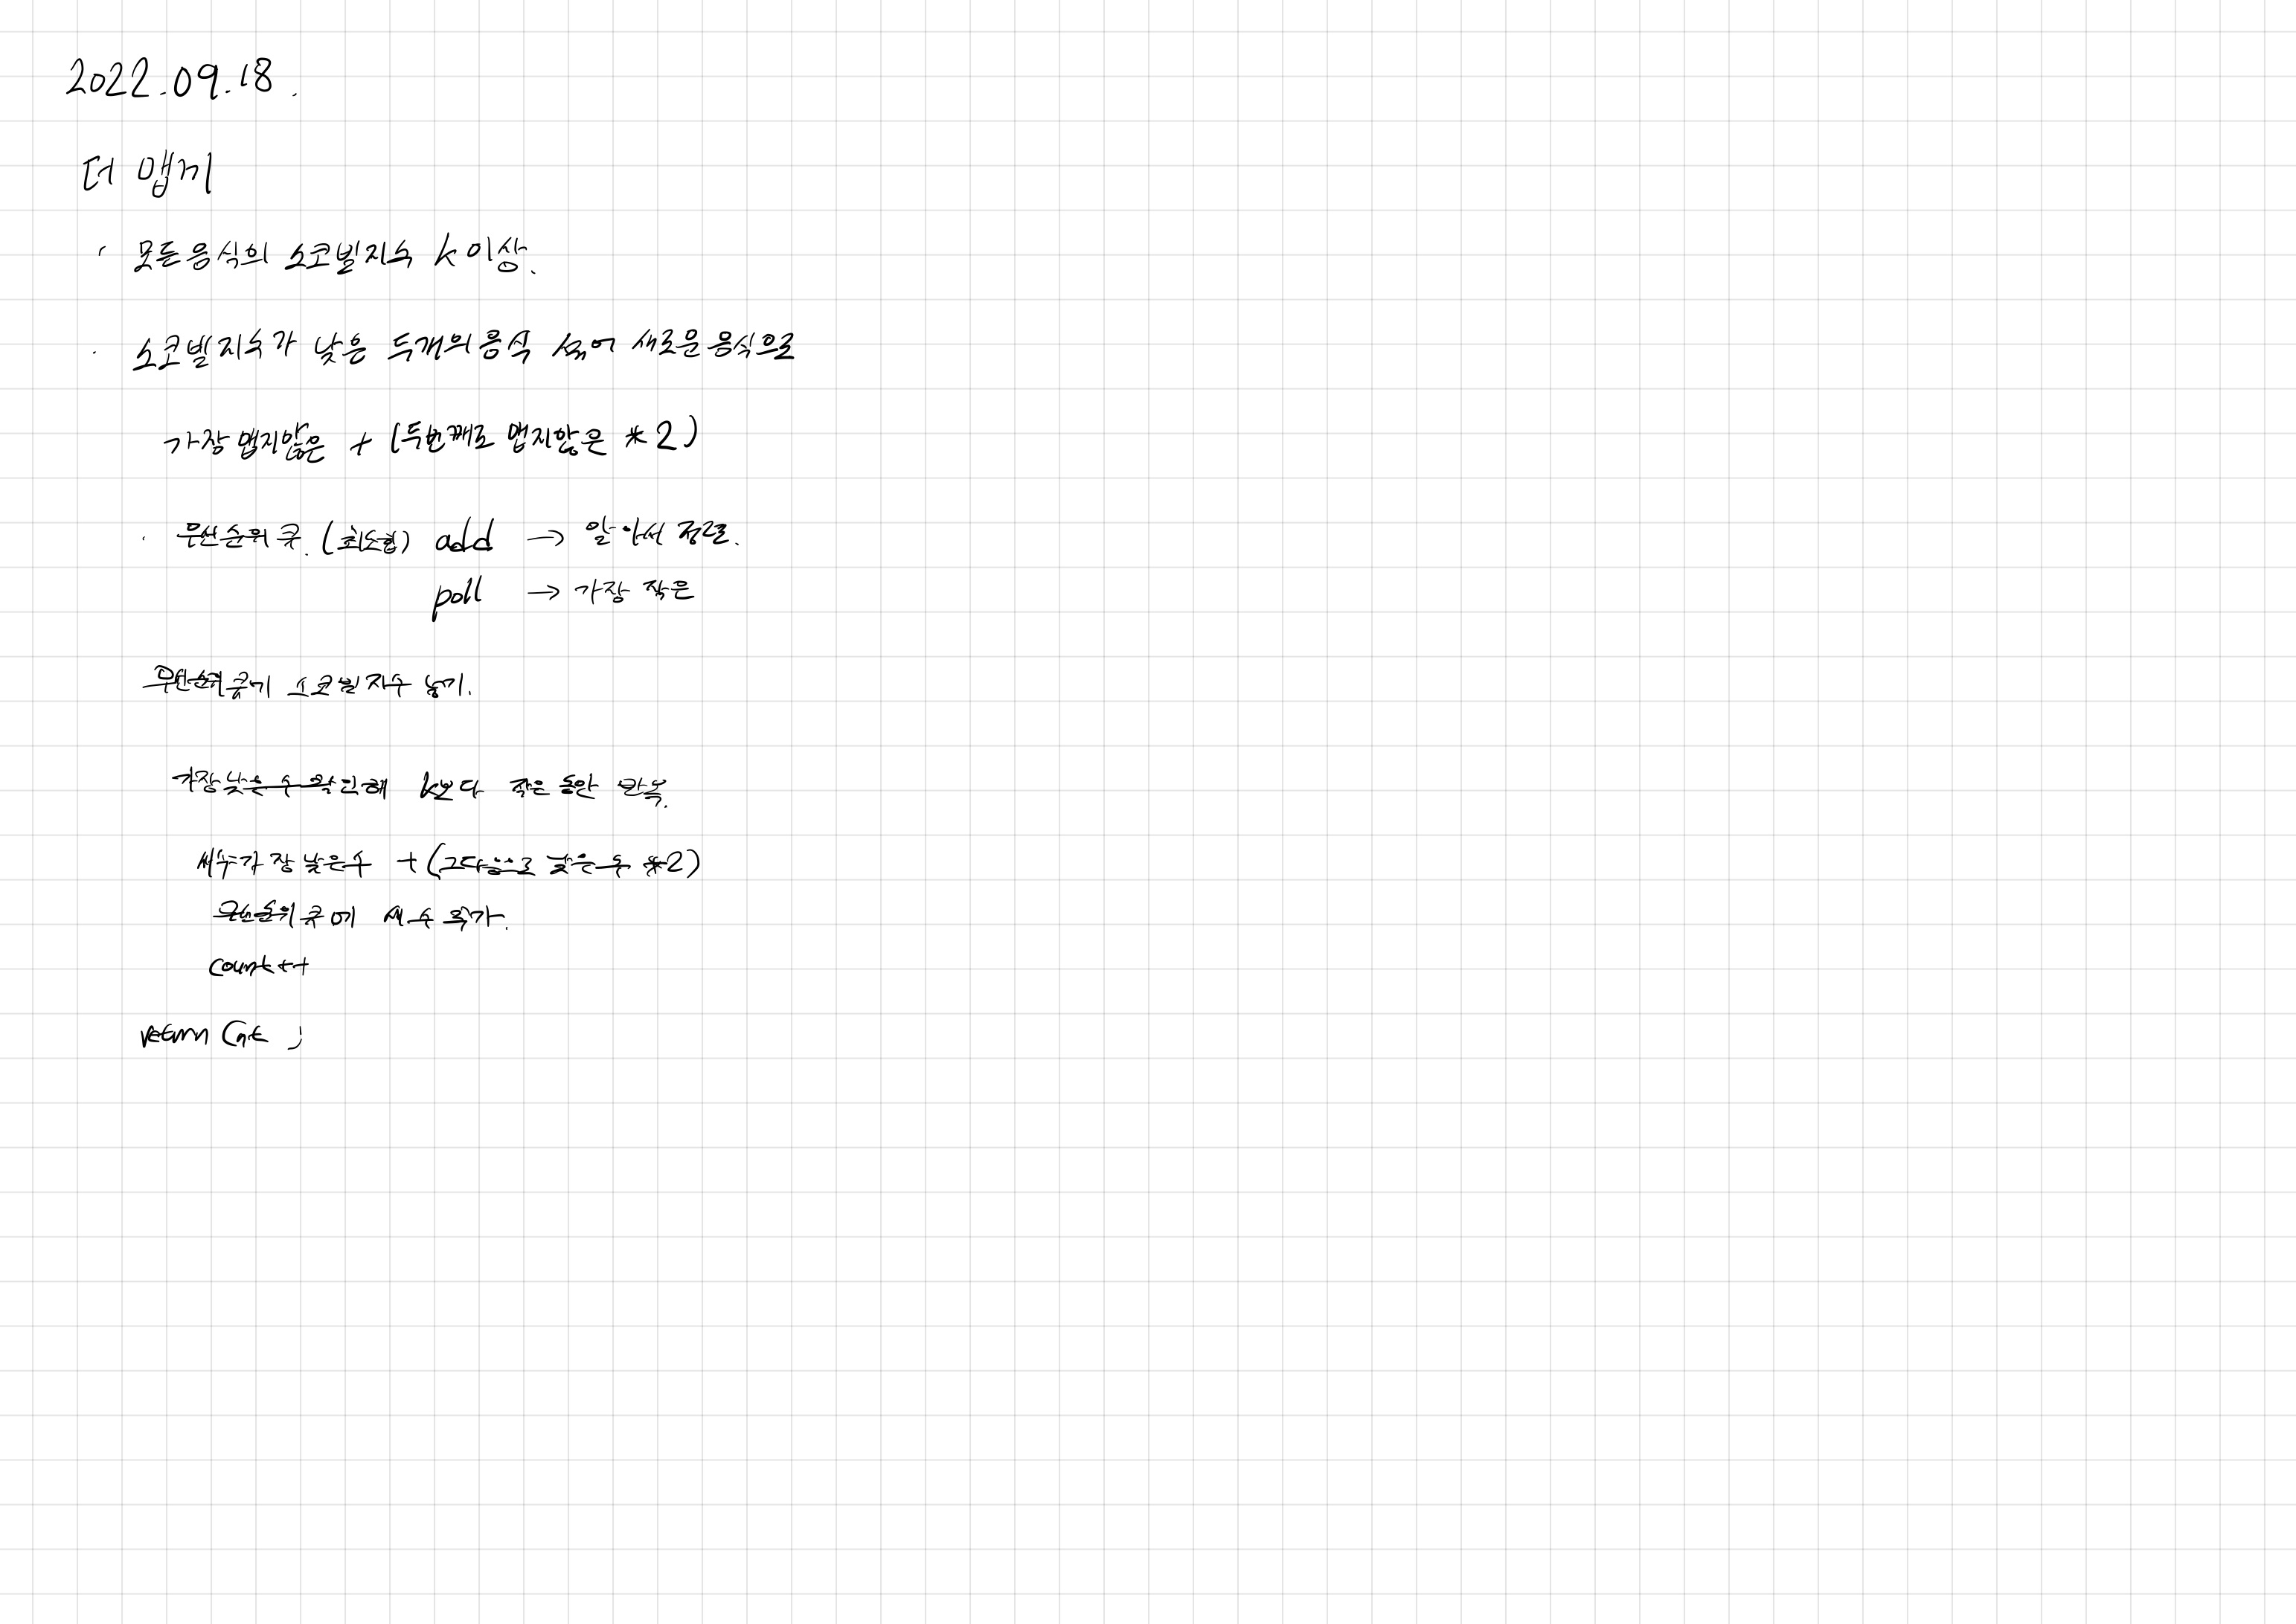 2022.09.18.
더 맵게
· 모든 음식의 스코빌지수 K 이상.
· 스코빌 지수가 낮은 두개의 음식 섞어 새로운 음식으로
가장 맵지않은 + (두번째로 맵지않은 * 2)
· 우선순위 큐. (최소힙) add → 알아서 정렬.
poll → 가장 작은
우선순위 큐에 스코빌 지수 넣기.
가장 낮은 수 확인해 K보다 작은 동안 반복.
새수=가장 낮은수 + (그다음으로 낮은 수 *2)
우선순위 큐에 새 수 추가.
count++
return Cnt ;